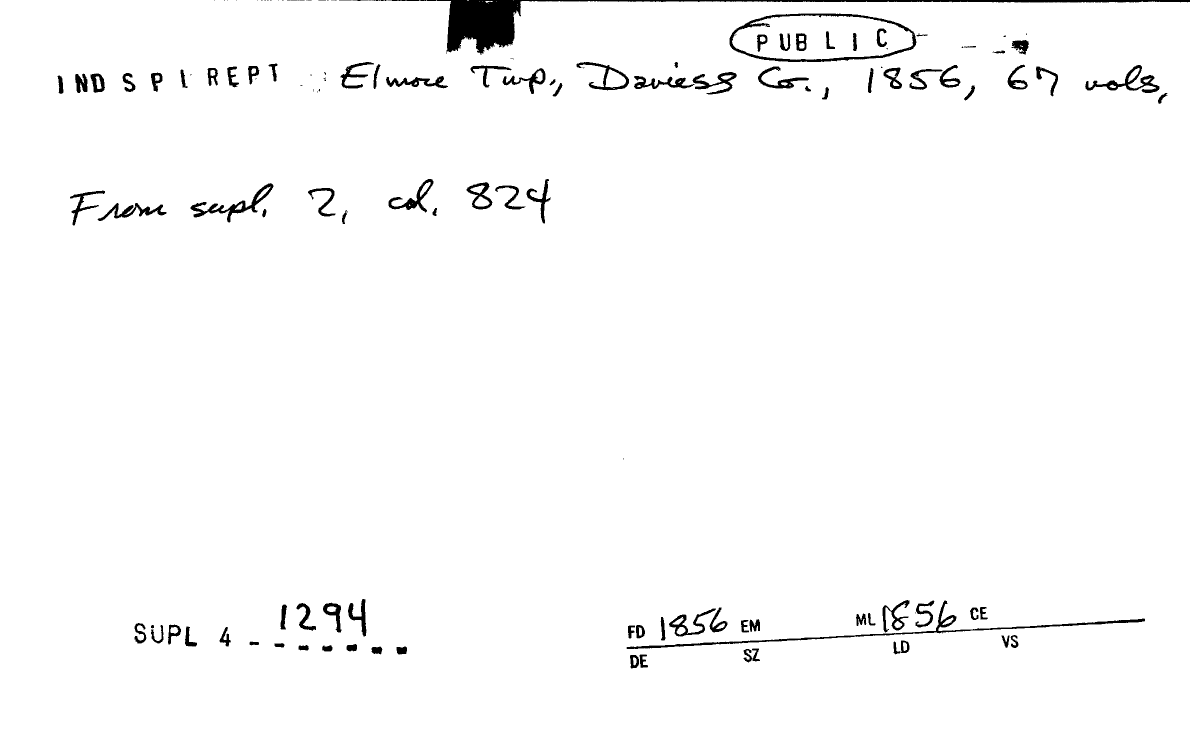 PUBLIC
IND SPI REPT : Elmore Twp., Daviess Co., 1856, 67 vols,
From supl. 2, col. 824
SUPL 4 - 1294
FD 1856 EM ML 1856 CE
DE SZ LD VS